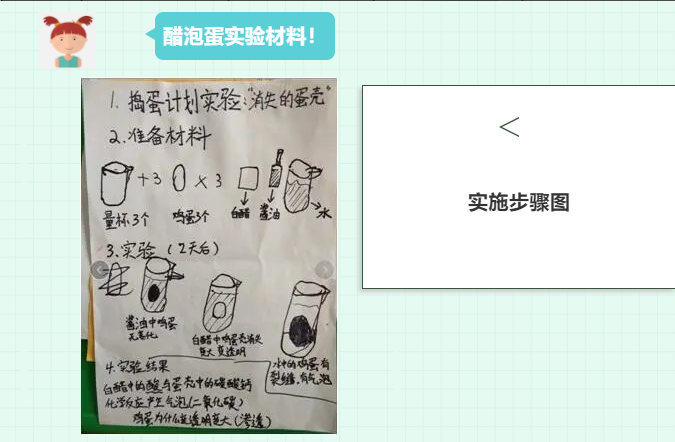 醋泡蛋实验材料！
1. 捣蛋计划实验:"消失的蛋壳"
2.准备材料
+3 ×3
量杯3个 鸡蛋3个 白醋 酱油 水
3.实验（2天后）
酱油中鸡蛋
无变化
白醋中鸡蛋壳消失
变大 变透明
水中的鸡蛋有
裂缝,有气泡
4.实验结果
白醋中的酸与蛋壳中的碳酸钙
化学反应产生气泡(二氧化碳)
鸡蛋为什么变透明变大(渗透)
<
实施步骤图